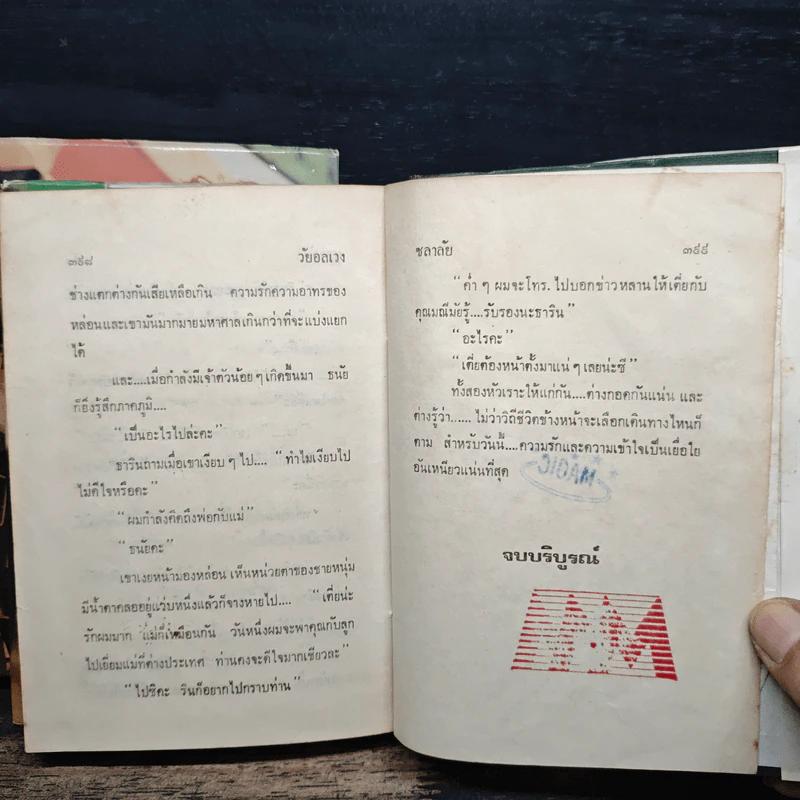 ๓๙๘ วัยอลเวง
ช่างแตกต่างกันเสียเหลือเกิน ความรักความอาทรของ
หล่อนและเขามันมากมายมหาศาลเกินกว่าที่จะแบ่งแยก
ได้
และ....เมื่อกำลังมีเจ้าตัวน้อย ๆ เกิดขึ้นมา ธนัย
ก็ยิ่งรู้สึกภาคภูมิ....
“เป็นอะไรไปล่ะคะ”
ธารินถามเมื่อเขาเงียบ ๆ ไป.... “ทำไมเงียบไป
ไม่ดีใจหรือคะ”
“ผมกำลังคิดถึงพ่อกับแม่”
“ธนัยคะ”
เขาเงยหน้ามองหล่อน เห็นหน่วยตาของชายหนุ่ม
มีน้ำตาคลออยู่แว่บหนึ่งแล้วก็จางหายไป.... “เตี่ยน่ะ
รักผมมาก แม่ก็เหมือนกัน วันหนึ่งผมจะพาคุณกับลูก
ไปเยี่ยมแม่ที่ต่างประเทศ ท่านคงจะดีใจมากเชียวละ”
“ไปซิคะ รินก็อยากไปกราบท่าน”
ชลาลัย ๓๙๙
“ค่ำ ๆ ผมจะโทร. ไปบอกข่าวหลานให้เตี่ยกับ
คุณมณีมัยรู้....รับรองนะธาริน”
“อะไรคะ”
“เตี่ยต้องหน้าตั้งมาแน่ ๆ เลยน่ะซี”
ทั้งสองหัวเราะให้แก่กัน....ต่างกอดกันแน่น และ
ต่างรู้ว่า...... ไม่ว่าวิถีชีวิตข้างหน้าจะเลือกเดินทางไหนก็
ตาม สำหรับวันนี้....ความรักและความเข้าใจเป็นเยื่อใย
อันเหนียวแน่นที่สุด
MAGIC
จบบริบูรณ์